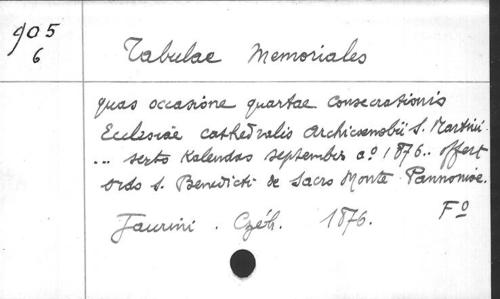 905
6
Tabulae Memoriales
quas occasione quartae Consecrationis
Ecclesiae cathedralis Archicoenobii S. Martini
... serto Kalendas September aº 1876.. offert
Ordo S. Benedicti de Sacro Monte Pannoniae.
Jaurini. Czéh. 1876. Fº